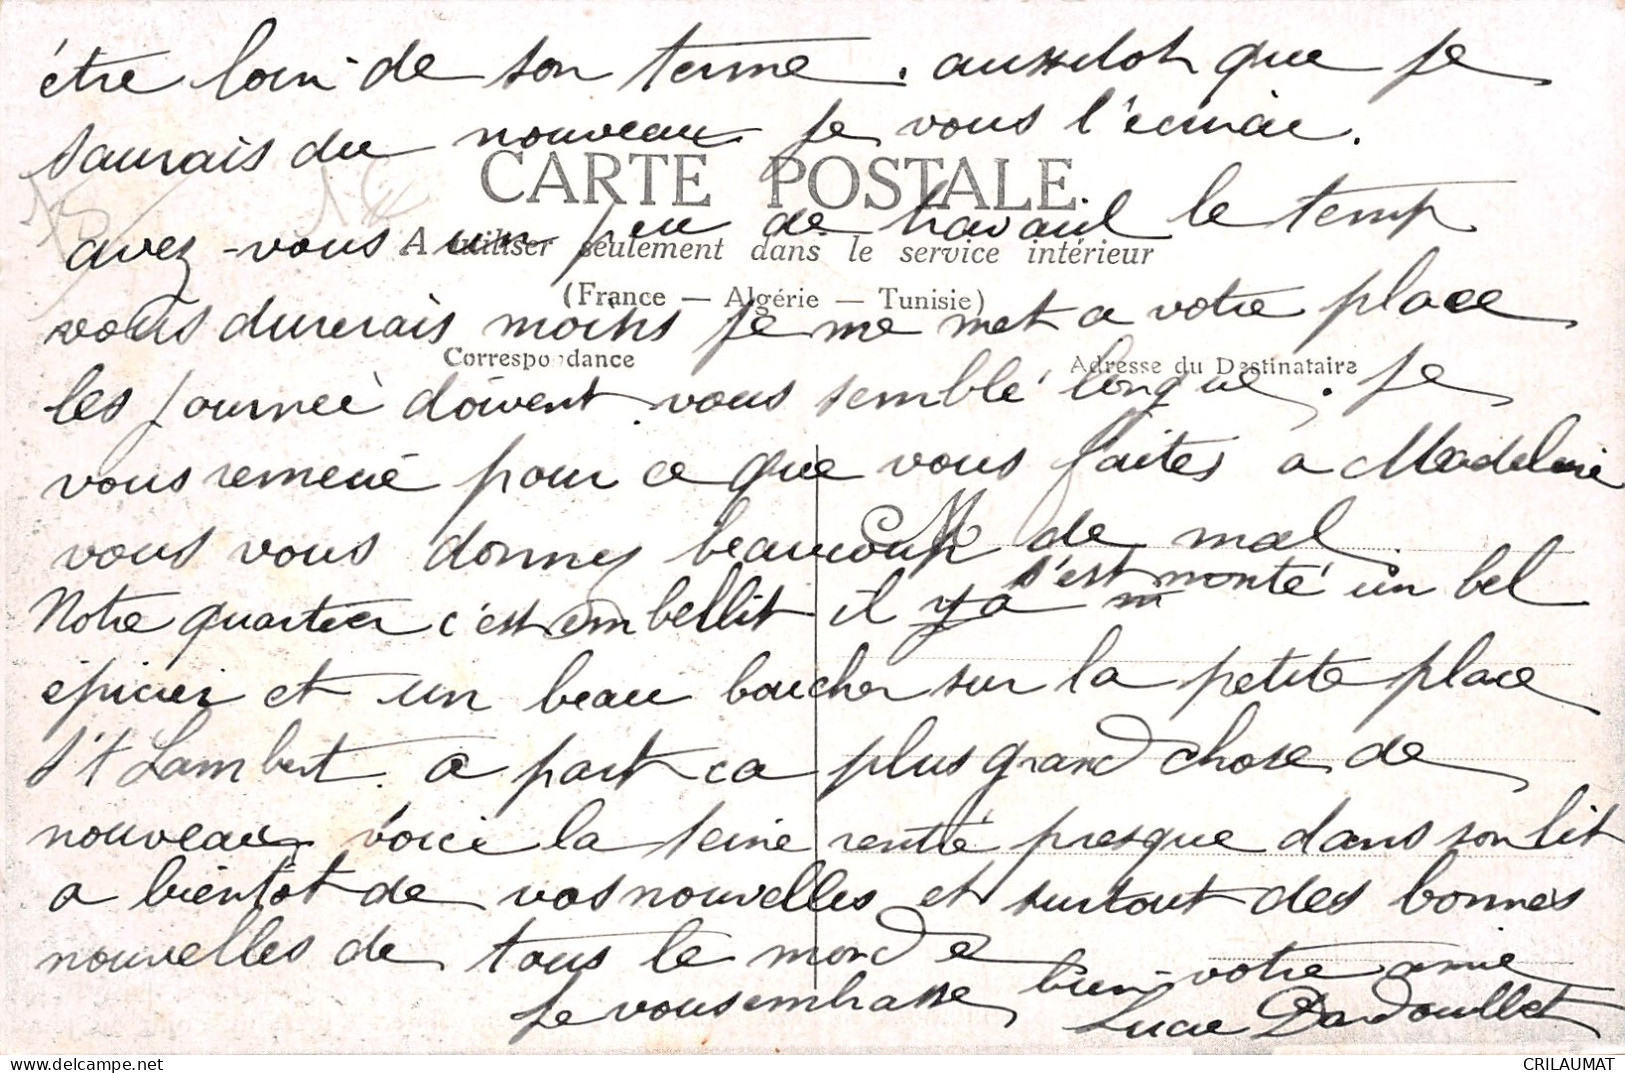 être loin de son terme. aussitot que je
saurais du nouveau je vous l'écrirai.
CARTE POSTALE
avez-vous un peu de travail le temp
A utiliser seulement dans le service intérieur
(France — Algérie — Tunisie)
vous durerais moins je me met a votre place
Correspondance
Adresse du Destinataire
les journeé doivent vous semblé longue. Je
vous remercié pour ce que vous faites a Madeleine
M
vous vous donnez beaucoup de mal.
Notre quartier c'est embellit il y a s'est monté un bel
épicier et un beau boucher sur la petite place
St Lambert. a part ca plus grand chose de
nouveau voici la seine rentré presque dans son lit
a bientot de vos nouvelles et surtout des bonnes
nouvelles de tous le monde
Je vous embrasse bien votre amie
Lucie Dardouillet
CRILAUMAT
http://www.delcampe.net